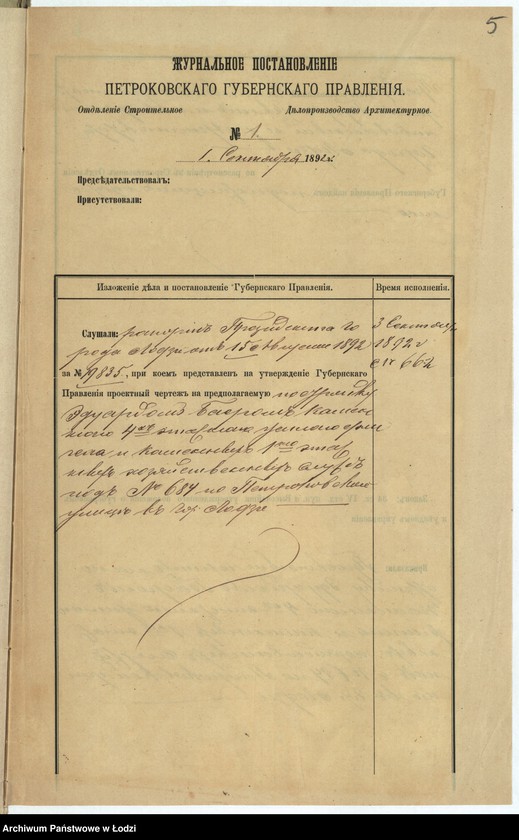 5
ЖУРНАЛЬНОЕ ПОСТАНОВЛЕНІЕ
ПЕТРОКОВСКАГО ГУБЕРНСКАГО ПРАВЛЕНІЯ.
Отдѣленіе Строительное Дѣлопроизводство Архитектурное.
№ 1.
1. Сентября 1892 г.
Предсѣдательствовалъ:
Присутствовали:
Изложеніе дѣла и постановленіе Губернскаго Правленія. Время исполненія.
Слушали: рапортъ Президента го
рода Лодзи отъ 15 Августа 1892
за № 9835, при коемъ представленъ на утвержденіе Губернскаго
Правленія проектный чертежъ на предполагаемую постройку
Эдуардомъ камен
наго 4хъ этажнаго жилаго дома
и каменныхъ 1но этаж
ныхъ хозяйственныхъ службъ
подъ № 684 по Петроковской
улицѣ въ гор. Лодзи
3 Сентября
1892 г
№ 662
Archiwum Państwowe w Łodzi